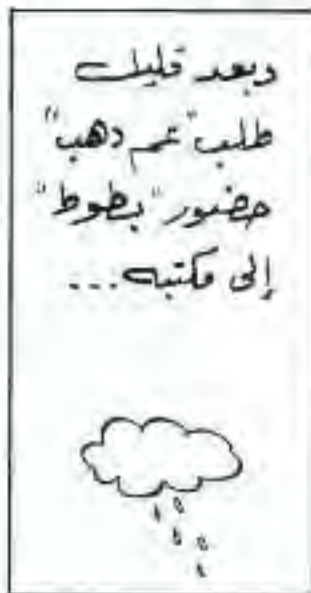 وبعد قليل
طلب "عم دهب"
حضور "بطوط"
إلى مكتبه...